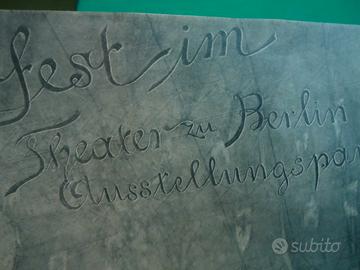 fest im
Theater zu Berlin
Ausstellungspar
subito